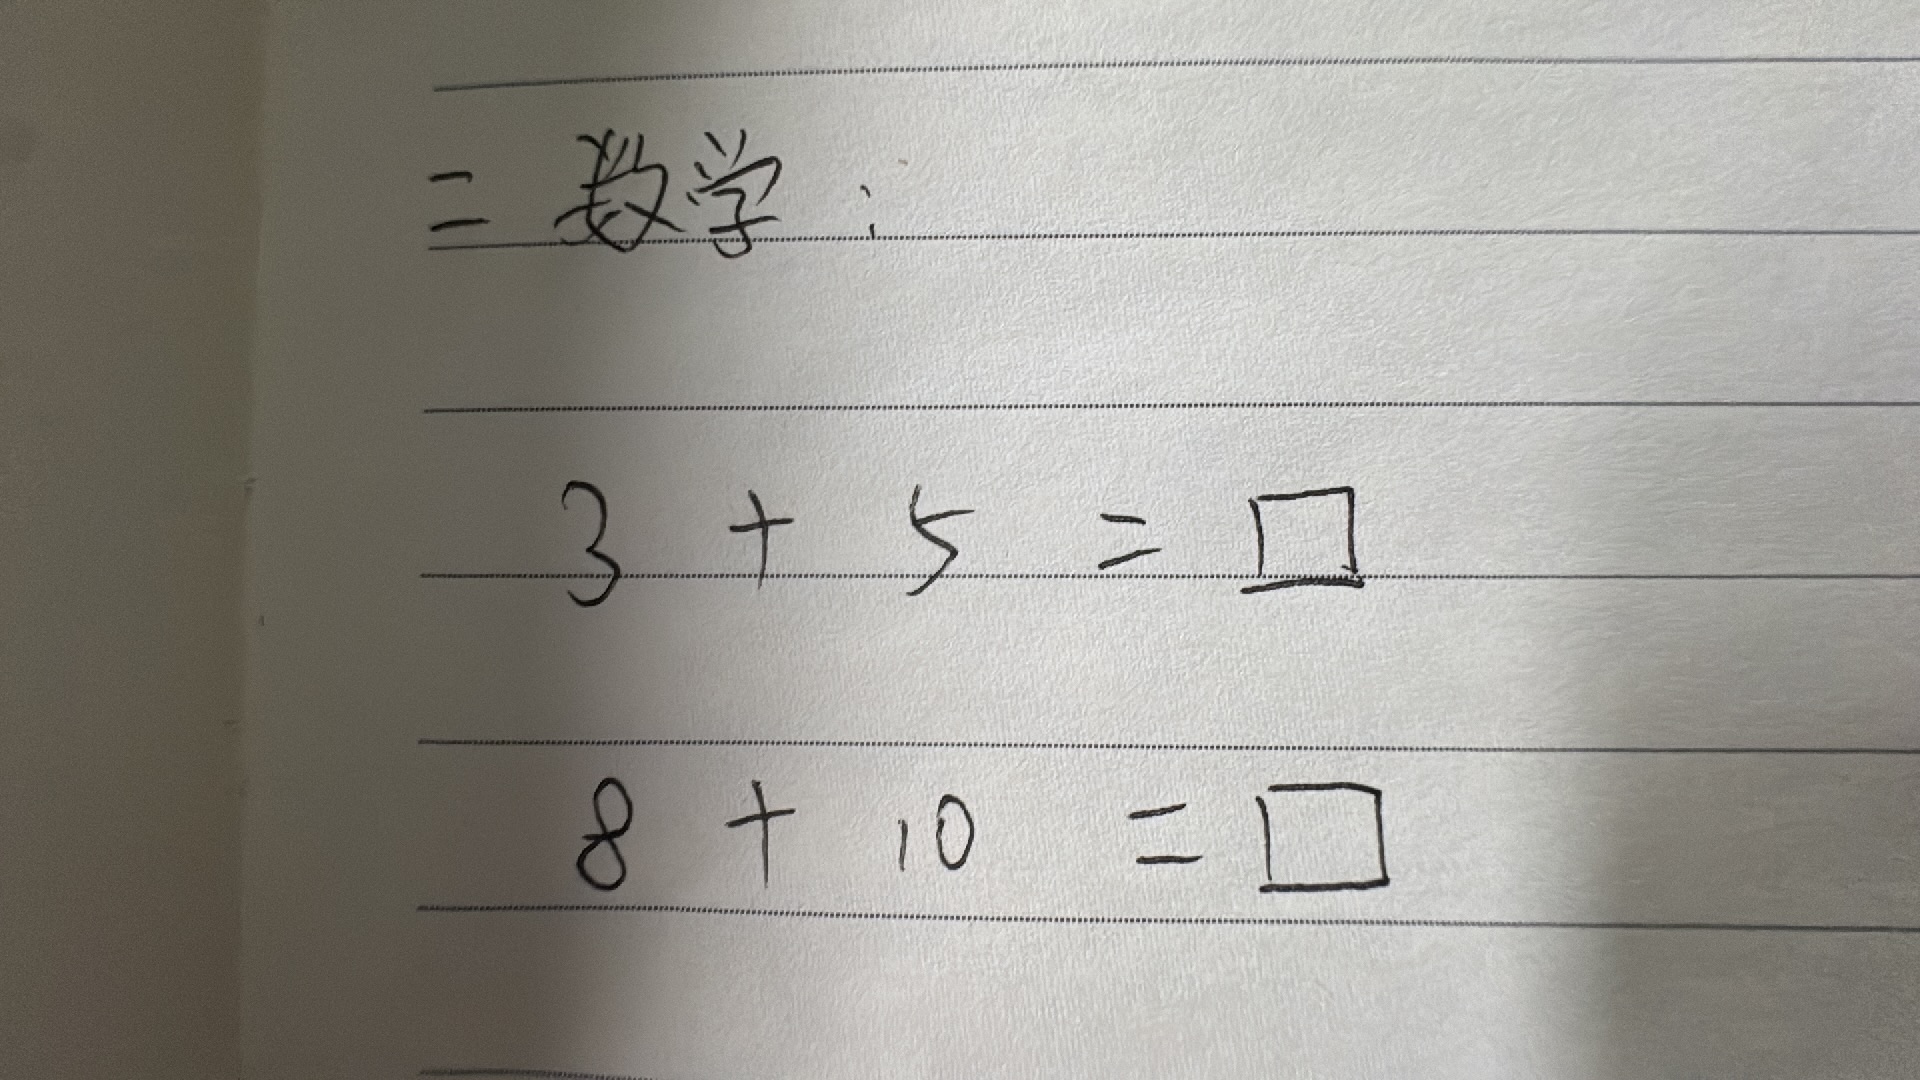 二 数学：
3 + 5 = □
8 + 10 = □